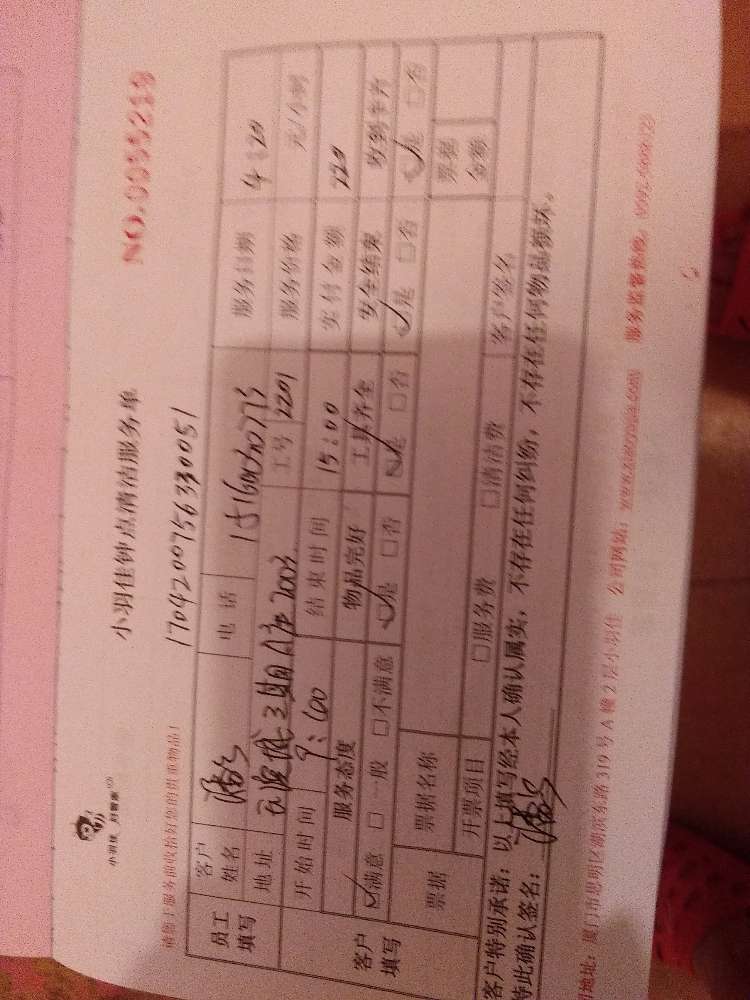 小羽佳钟点清洁服务单
NO.0055219
小羽佳
1704200756330051
请您于服务前收拾好您的贵重物品!
员工填写 客户姓名 电话 服务日期 4:20
地址 工号 2201 服务价格 元/小时
开始时间 9:00 结束时间 15:00 实付金额 220
客户填写 服务态度 物品完好 工具齐全 安全结束 收到卡片
☑满意 □一般 □不满意 ☑是 □否 ☑是 □否 ☑是 □否 ☑是 □否
票据 票据名称 票据金额
开票项目 □服务费 □清洁费 客户签名
客户特别承诺：以上填写经本人确认属实，不存在任何纠纷，不存在任何物品损坏。
特此确认签名：
地址：厦门市思明区湖滨东路319号A幢2层小羽佳 公司网站： 服务监督热线：